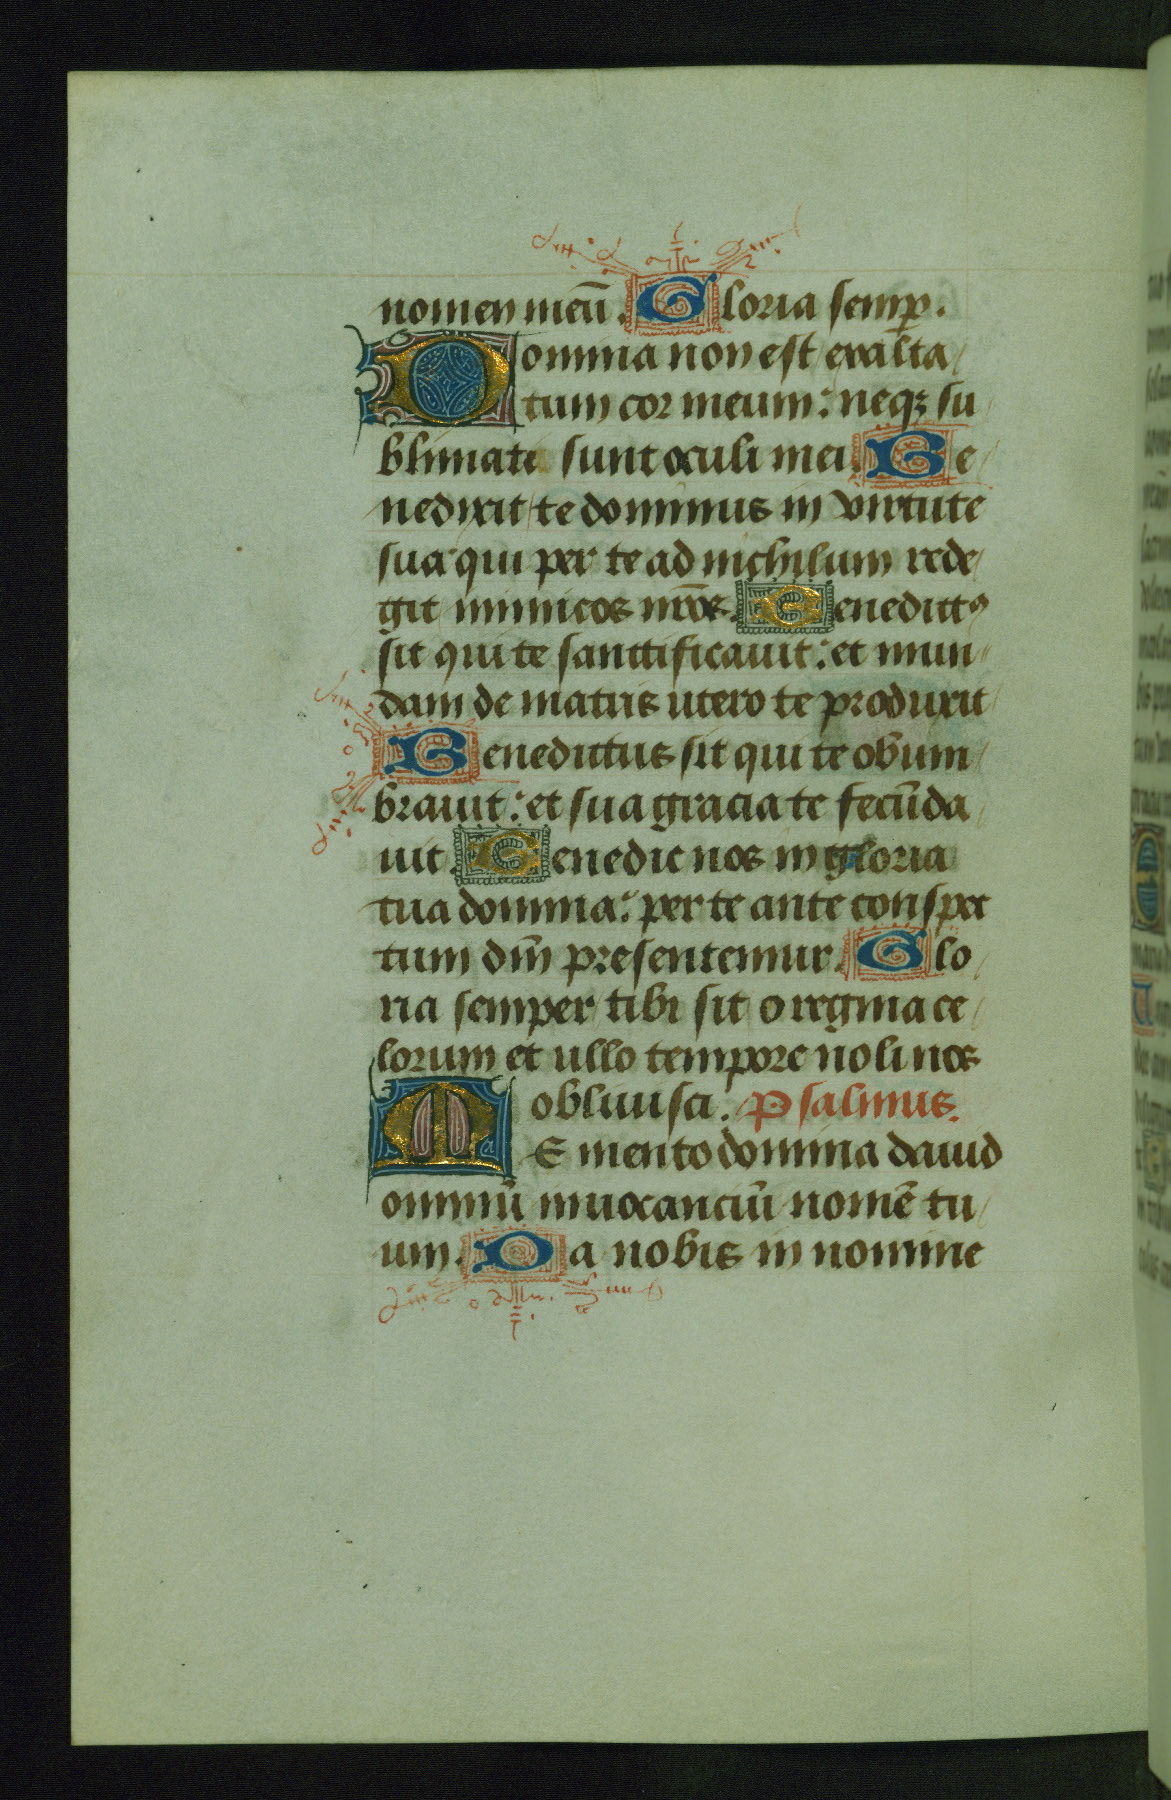 nomen meū. Gloria semp̲.
Domina non est exalta
tum cor meum: neqꝫ su
blimati sunt oculi mei. Be
nedixit te dominus in virtute
sua: qui per te ad nichilum rede
git inimicos nr̄os. Benedictꝰ
sit qui te sanctificauit: et mun
dam de matris utero te produxit
Benedictus sit qui te obum
brauit: et sua gracia te fecūda
uit. Benedic nos in gloria
tua domina: per te ante conspec
tum dm̄ presentemur. Glo
ria semper tibi sit o regina ce
lorum et ullo tempore noli nos
obliuisci. Psalmus.
MEmento domina dauid
omniū inuocanciū nomē tu
um. Da nobis in nomine